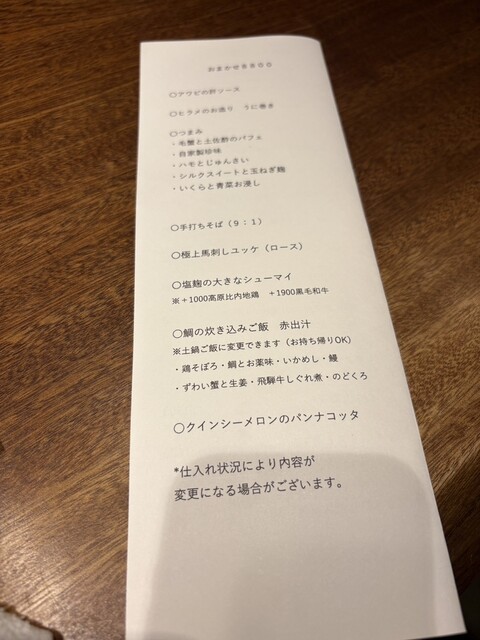 おまかせ8800
〇アワビの肝ソース
〇ヒラメのお造り　うに巻き
〇つまみ
・毛蟹と土佐酢のパフェ
・自家製珍味
・ハモとじゅんさい
・シルクスイートと玉ねぎ麹
・いくらと青菜お浸し
〇手打ちそば（９：１）
〇極上馬刺しユッケ（ロース）
〇塩麹の大きなシューマイ
※＋1000高原比内地鶏　＋1900黒毛和牛
〇鯛の炊き込みご飯　赤出汁
※土鍋ご飯に変更できます（お持ち帰りOK）
・鶏そぼろ・鯛とお薬味・いかめし・鰻
・ずわい蟹と生姜・飛騨牛しぐれ煮・のどくろ
〇クインシーメロンのパンナコッタ
*仕入れ状況により内容が
変更になる場合がございます。